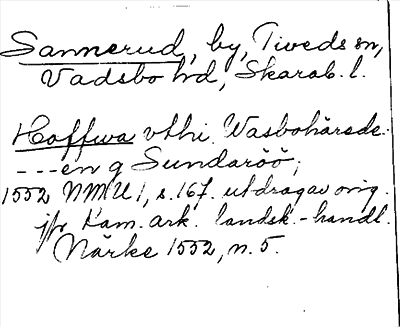 Sannerud, by, Tiveds sn,
Vadsbo hd, Skarab. l.
Haffwa vthi Wasbohärade
---en g Sundaröö;
1552 NMU 1, s. 167. utdrag av orig.
jfr Kam. ark. landsk.-handl.
Närke 1552, n. 5.